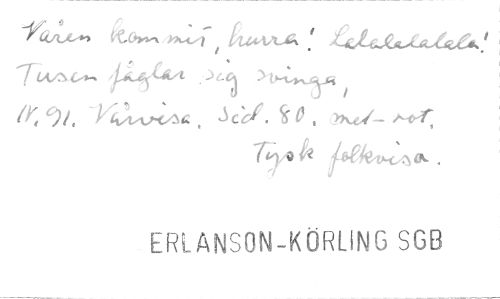 Våren kommit, hurra! Lalalalalala!
Tusen fåglar sig svinga,
N. 91. Vårvisa. Sid. 80. met-rot.
Tysk folkvisa.
ERLANSON-KÖRLING SGB